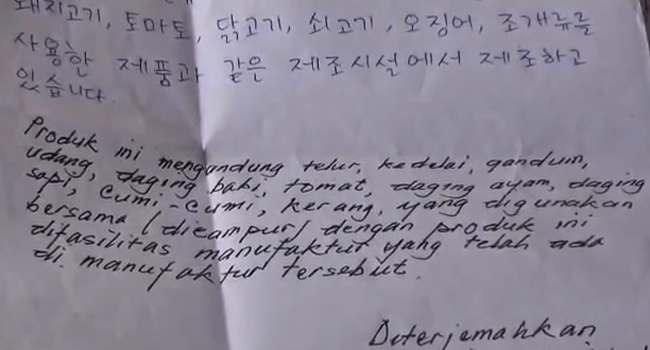 돼지고기, 토마토, 닭고기, 쇠고기, 오징어, 조개류를
사용한 제품과 같은 제조시설에서 제조하고
있습니다.
Produk ini mengandung telur, kedelai, gandum,
udang, daging babi, tomat, daging ayam, daging
sapi, cumi-cumi, kerang, yang digunakan
bersama (dicampur) dengan produk ini
difasilitas manufaktur yang telah ada
di manufaktur tersebut.
Diterjemahkan